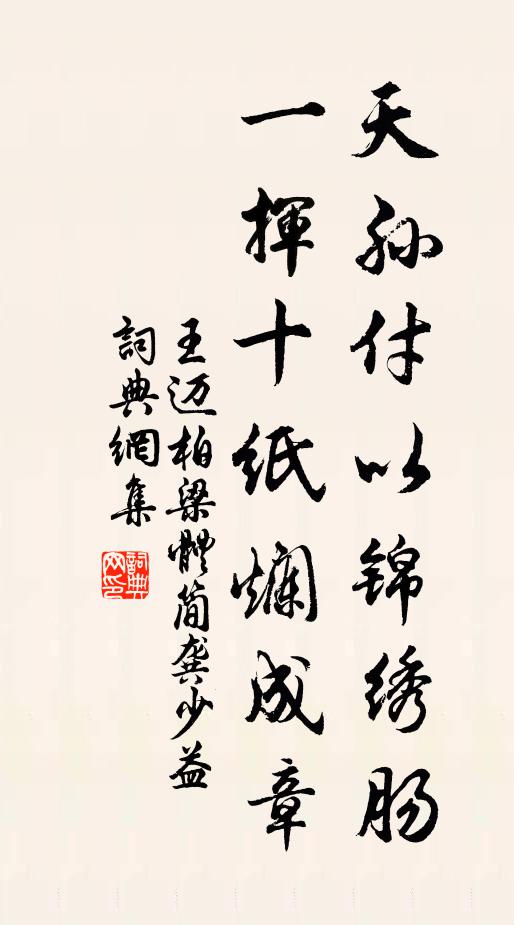 天孙付以锦绣肠
一揮十紙爛成章
王迈柏梁體简龚少益
詞典網集
詞典
网印